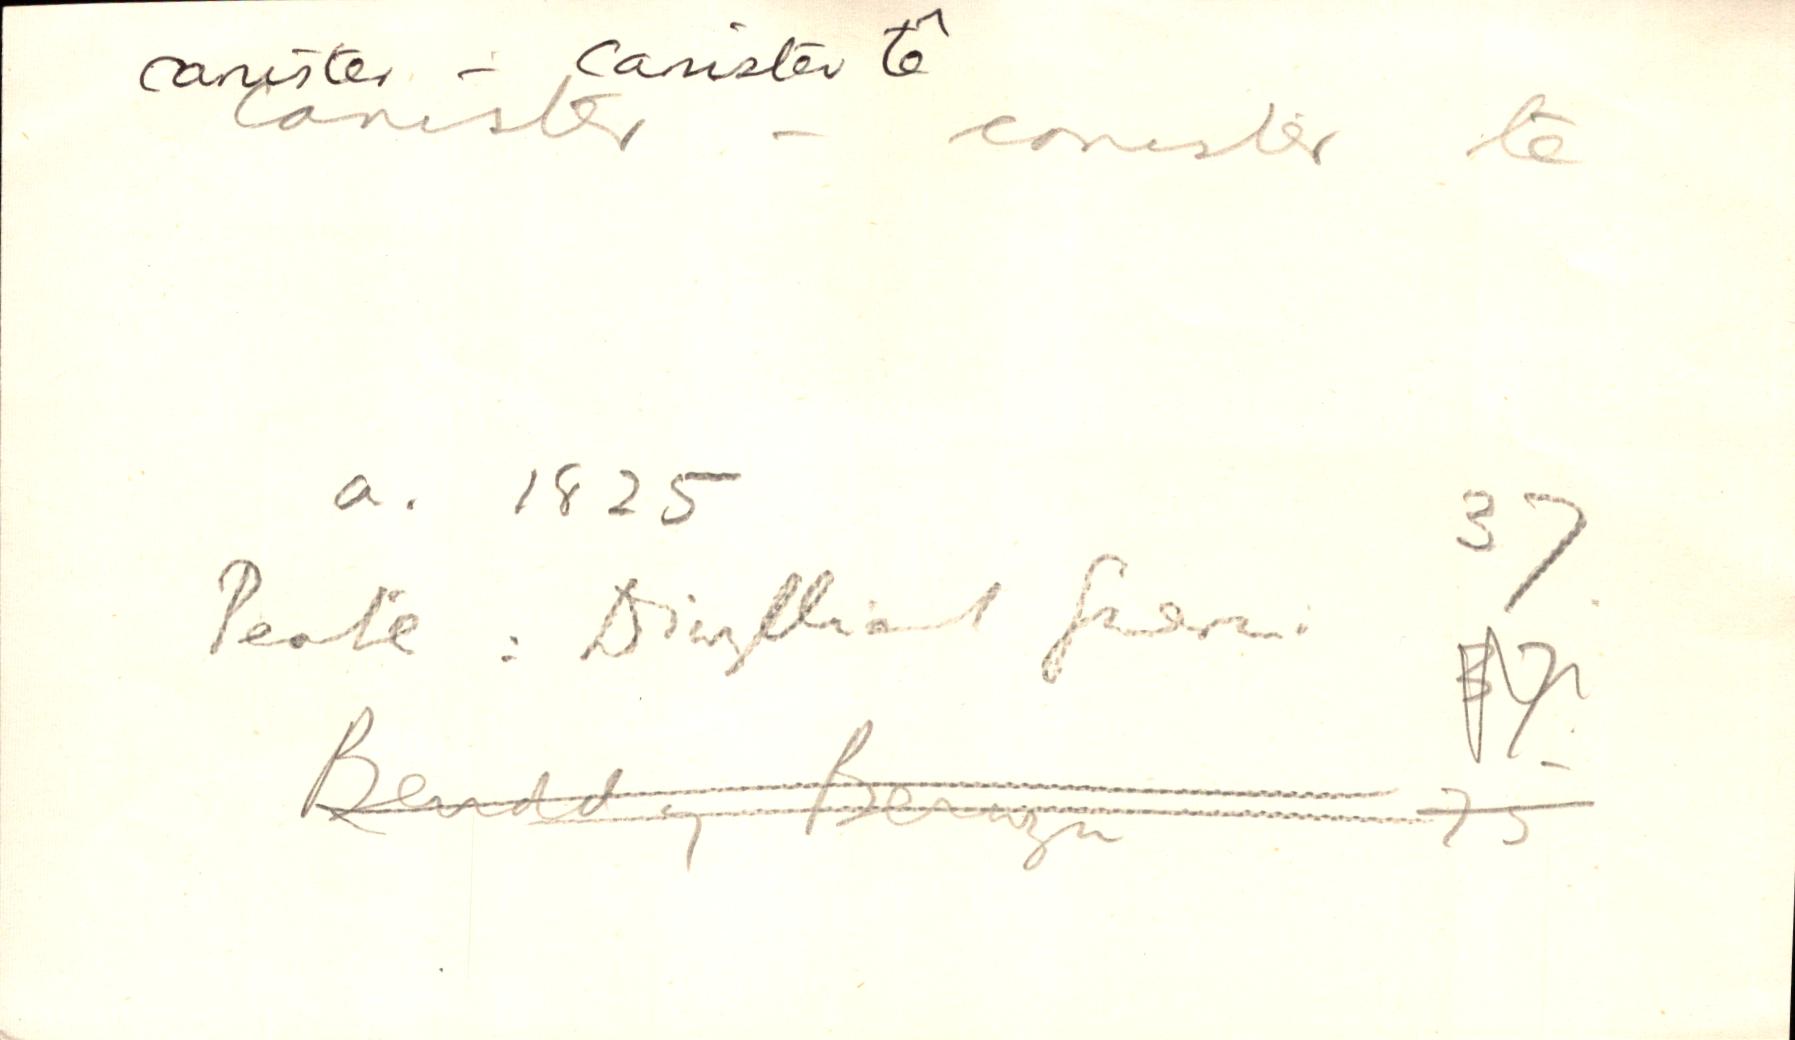 canister - canister tê
canister - canister tê
a. 1825 37
Peate : Diwylliant Gwerin
Beirdd y Berwyn 75